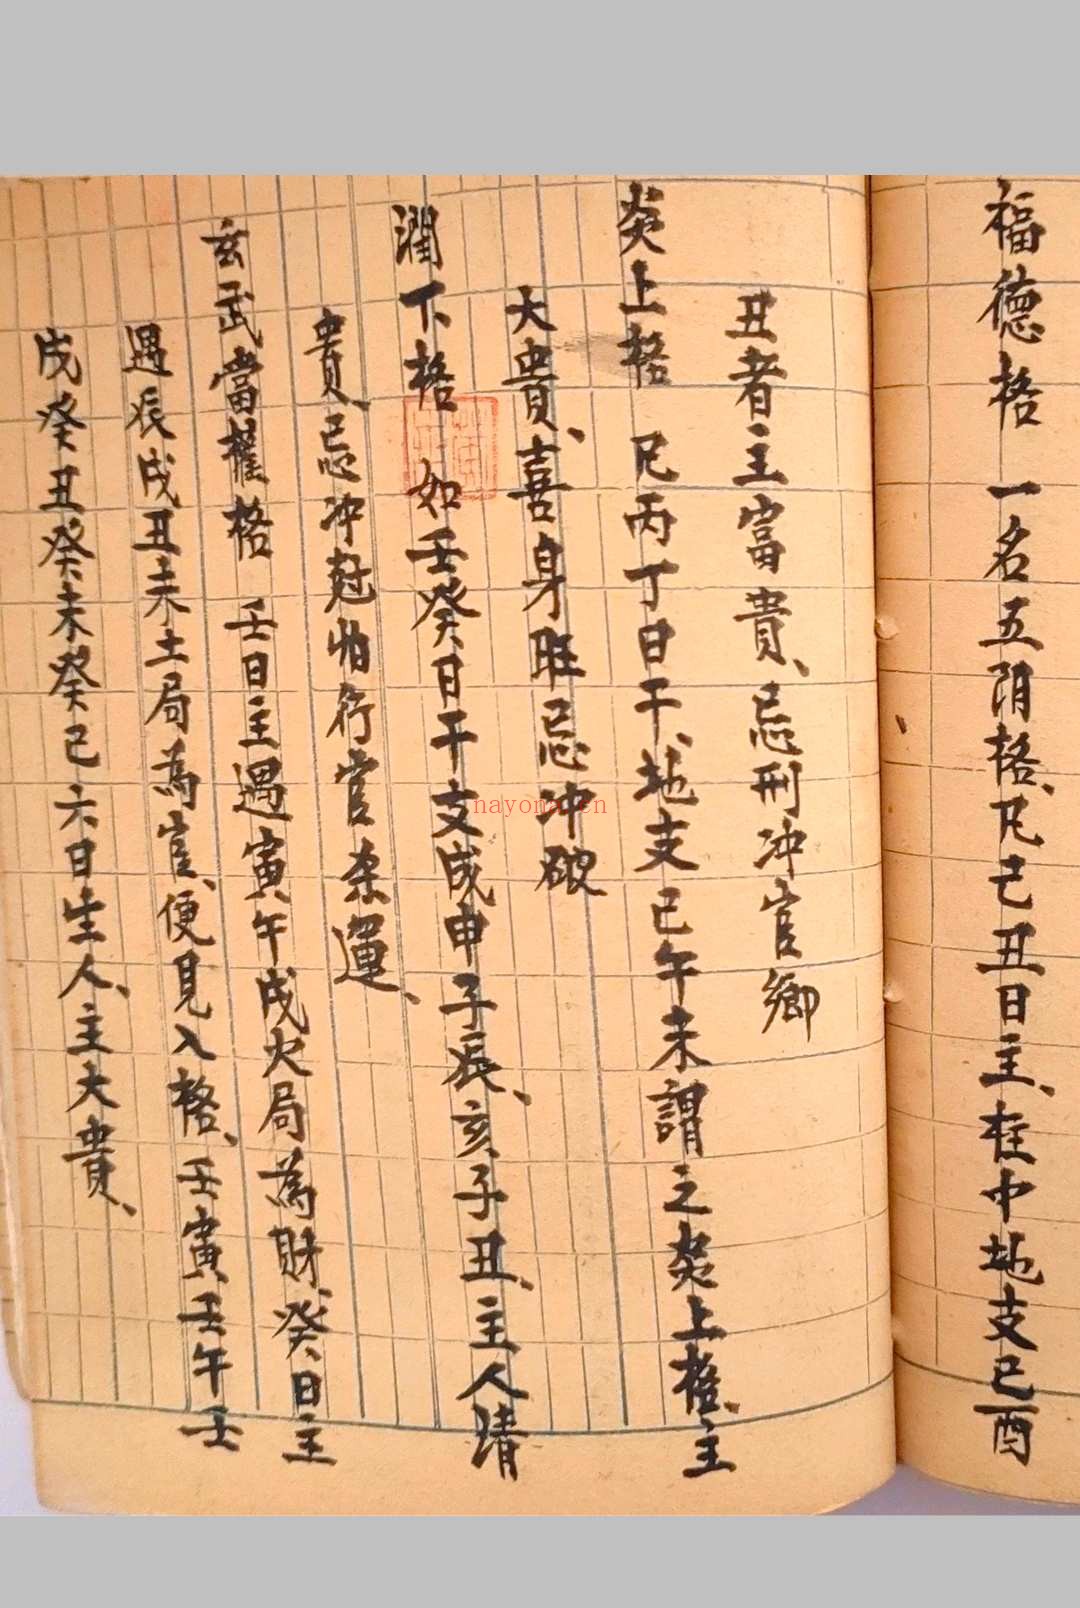 福德格 一名五阴格、凡己丑日主、柱中地支巳酉
丑者主富貴、忌刑冲官鄉
炎上格 凡丙丁日干、地支巳午未謂之炎上格、主
大貴、喜身旺忌冲破
潤下格 如壬癸日干支成申子辰、亥子丑、主人清
貴、忌冲尅怕行官杀運、
玄武當權格 壬日主遇寅午戌火局為財、癸日主
遇辰戌丑未土局為官、便見入格、壬寅壬午壬
戌癸丑癸未癸巳六日生人、主大貴、
nayona.cn